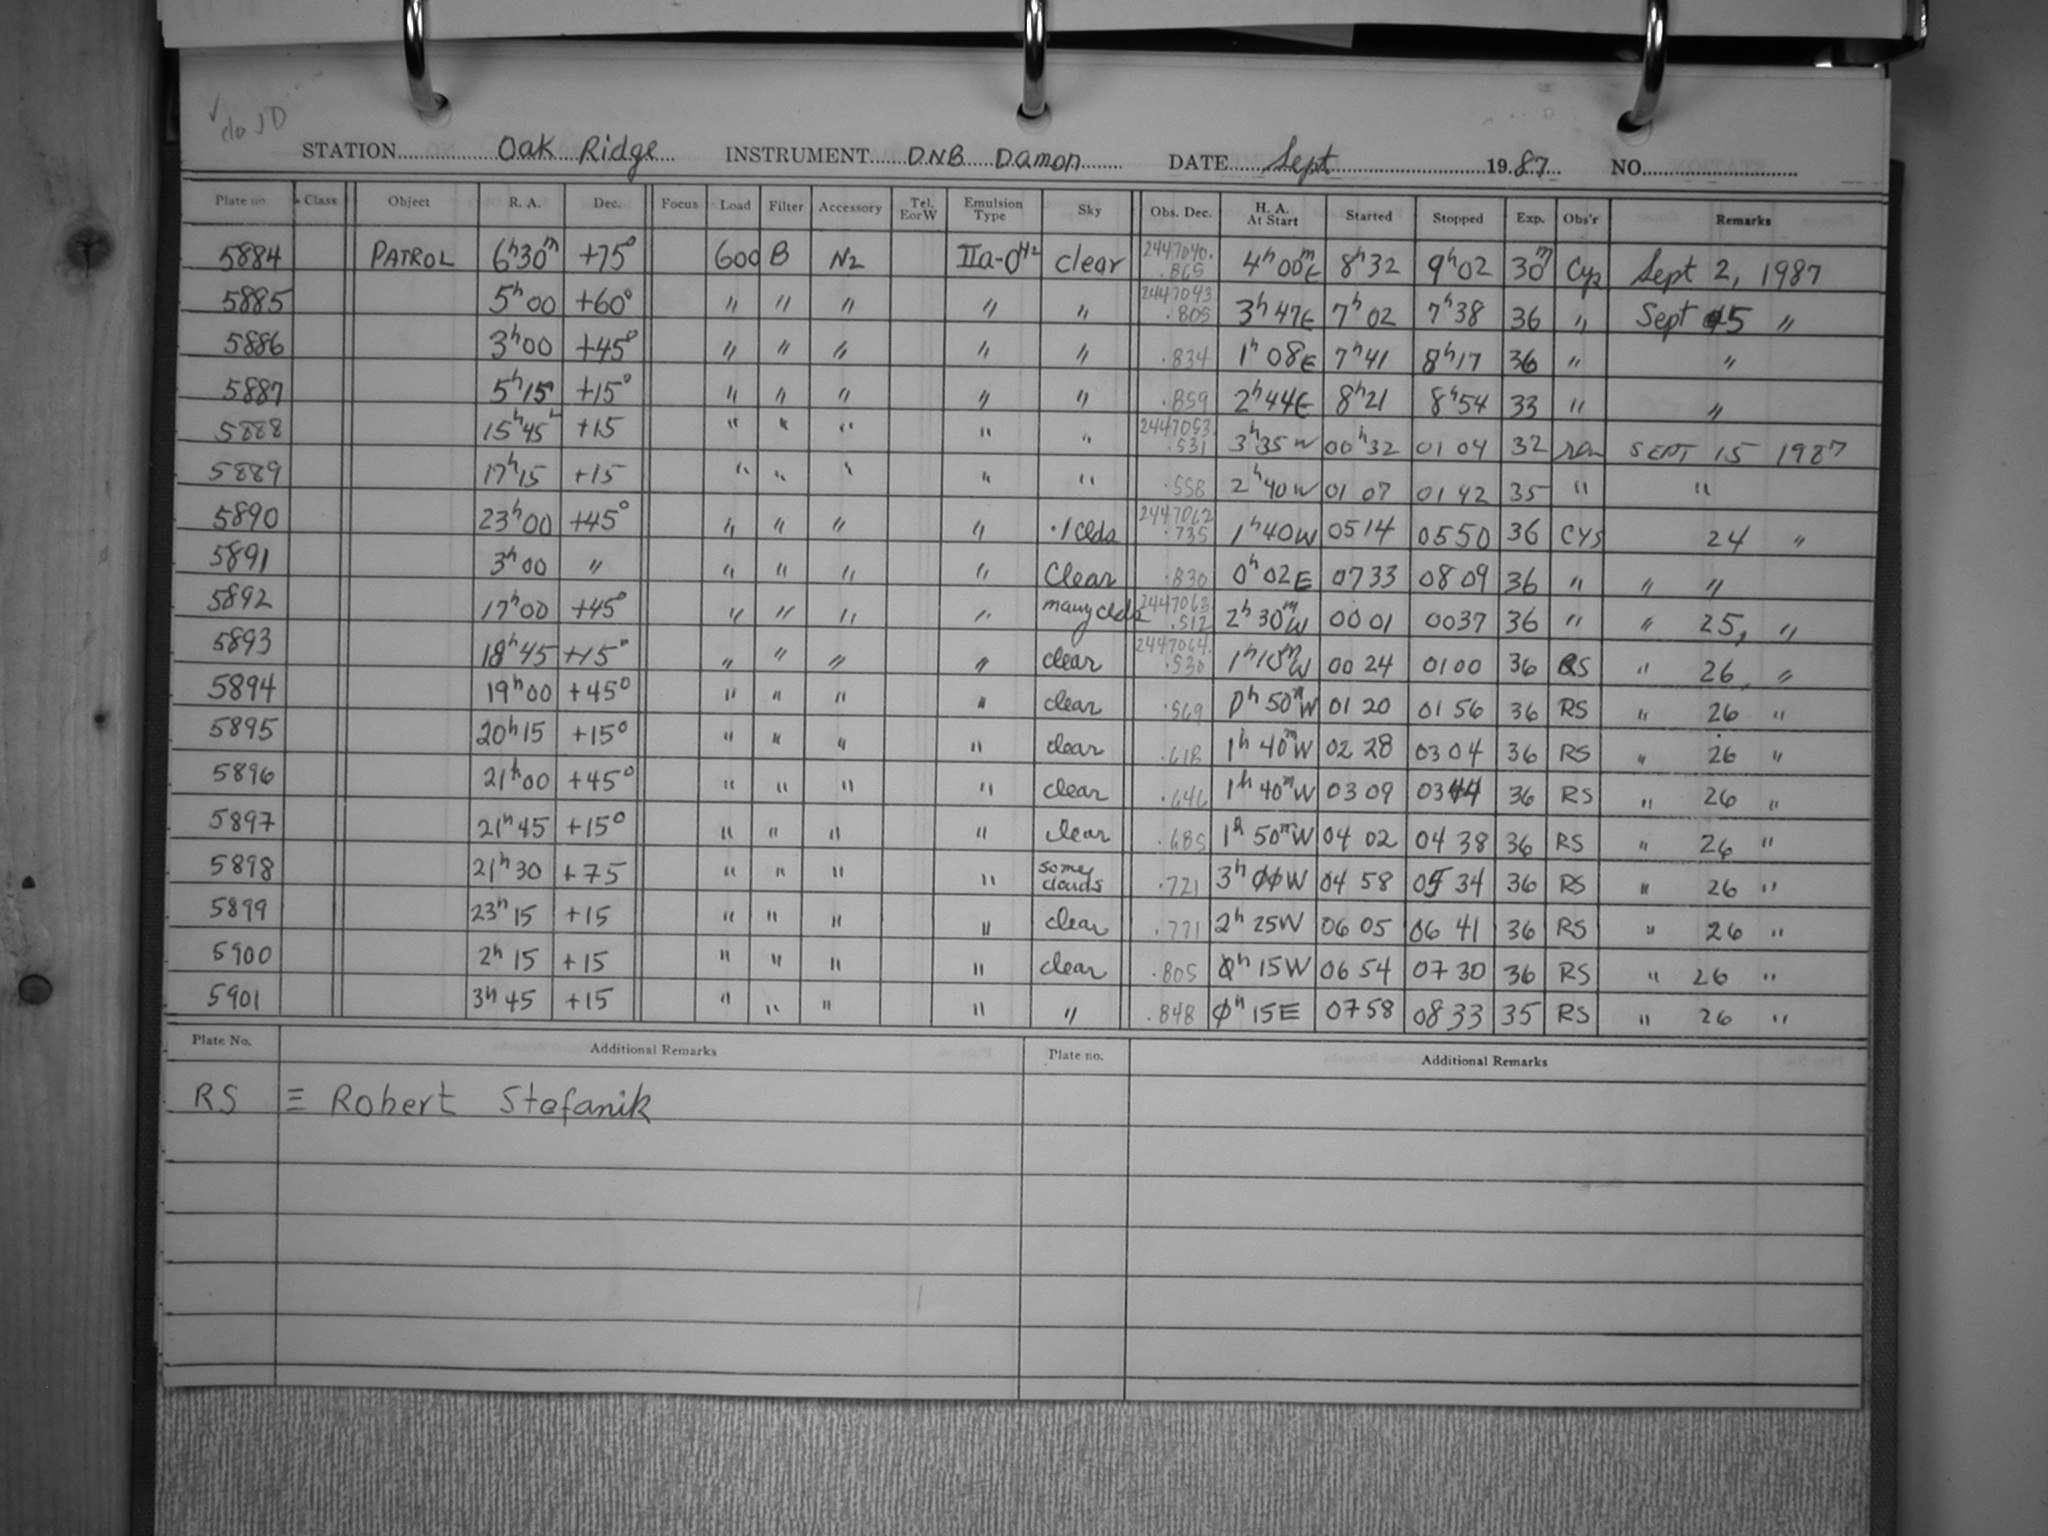 √ do JD
STATION Oak Ridge INSTRUMENT DNB Damon DATE Sept 1987 NO.
Plate no Class Object R. A. Dec. Focus Load Filter Accessory Tel. E or W Emulsion Type Sky Obs. Dec. H. A. At Start Started Stopped Exp. Obs'r Remarks
5884 PATROL 6h30m +75° 600 B N2 IIa-OH2 clear 2447040.865 4h00mE 8h32 9h02 30m Cys Sept 2, 1987
5885 5h00 +60° " " " " " 2447043.805 3h47E 7h02 7h38 36 " Sept 5 "
5886 3h00 +45° " " " " " .834 1h08E 7h41 8h17 36 " "
5887 5h15 +15° " " " " " .859 2h44E 8h21 8h54 33 " "
5888 15h45 +15 " " " " " 2447053.531 3h35W 00h32 01 04 32 SEPT 15 1987
5889 17h15 +15 " " " " " .558 2h40W 01 07 01 42 35 " "
5890 23h00 +45° " " " " .1 clds 2447062.735 1h40W 0514 0550 36 CYS 24 "
5891 3h00 " " " " " Clear .830 0h02E 0733 0809 36 " " "
5892 17h00 +45° " " " " many clds 2447063.512 2h30mW 0001 0037 36 " " 25, "
5893 18h45 +15° " " " " clear 2447064.530 1h10mW 00 24 0100 36 RS " 26, "
5894 19h00 +45° " " " " clear .569 0h50mW 01 20 01 56 36 RS " 26 "
5895 20h15 +15° " " " " clear .618 1h40mW 02 28 03 04 36 RS " 26 "
5896 21h00 +45° " " " " clear .646 1h40mW 03 09 0344 36 RS " 26 "
5897 21h45 +15° " " " " clear .685 1h50mW 04 02 04 38 36 RS " 26 "
5898 21h30 +75 " " " " some clouds .721 3h00W 04 58 05 34 36 RS " 26 "
5899 23h15 +15 " " " " clear .771 2h25W 06 05 06 41 36 RS " 26 "
5900 2h15 +15 " " " " clear .805 0h15W 06 54 07 30 36 RS " 26 "
5901 3h45 +15 " " " " " .848 0h15E 0758 0833 35 RS " 26 "
Plate No. Additional Remarks Plate no. Additional Remarks
RS ≡ Robert Stefanik